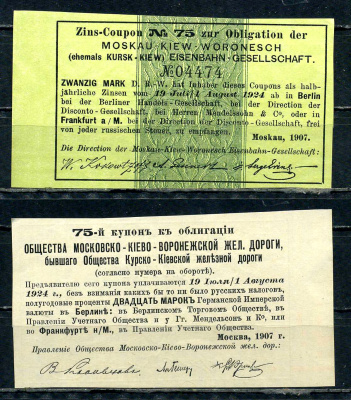 Zins-Coupon № 75 zur Obligation der
MOSKAU-KIEW-WORONESCH
(ehemals KURSK-KIEW) EISENBAHN-GESELLSCHAFT.
№04474
ZWANZIG MARK D. R.-W. hat Inhaber dieses Coupons als halb-
jährliche Zinsen vom 19 Juli/1 August 1924 ab in Berlin
bei der Berliner Handels-Gesellschaft, bei der Direction der
Disconto-Gesellschaft, bei Herren Mendelssohn & Co, oder in
Frankfurt a/M. bei der Direction der Disconto-Gesellschaft, frei
von jeder russischen Steuer, zu empfangen.
Moskau, 1907.
Die Direction der Moskau-Kiew-Woronesch Eisenbahn-Gesellschaft:
75-й купонъ къ облигаціи
ОБЩЕСТВА МОСКОВСКО-КІЕВО-ВОРОНЕЖСКОЙ ЖЕЛ. ДОРОГИ,
бывшаго Общества Курско-Кіевской желѣзной дороги
(согласно нумера на оборотѣ).
Предъявителю сего купона уплачиваются 19 Іюля/1 Августа
1924 г., безъ вниманія какихъ бы то ни было русскихъ налоговъ,
полугодовые проценты ДВАДЦАТЬ МАРОКЪ Германской Имперской
валюты въ Берлинѣ: въ Берлинскомъ Торговомъ Обществѣ, въ
Правленіи Учетнаго Общества и у Гг. Мендельсонъ и Ко, или
во Франкфуртѣ н/М., въ Правленіи Учетнаго Общества.
Москва, 1907 г.
Правленіе Общества Московско-Кіево-Воронежской жел. дор.: